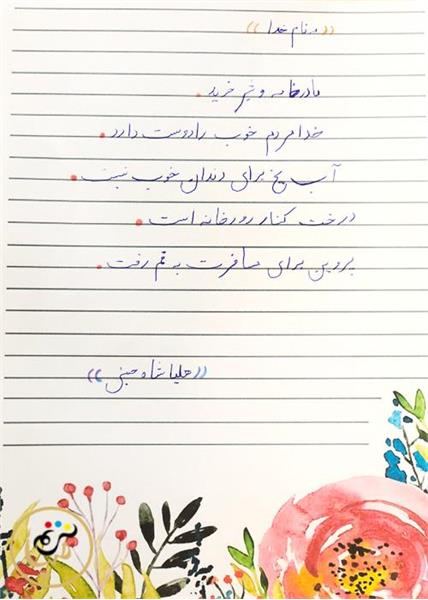 ((به نام خدا))
مادر خامه و شیر خرید.
خدا مردم خوب را دوست دارد.
آب یخ برای دندان خوب نیست.
درخت کنار رودخانه است.
پروین برای مسافرت به قم رفت.
((هلیا شاه حسینی))